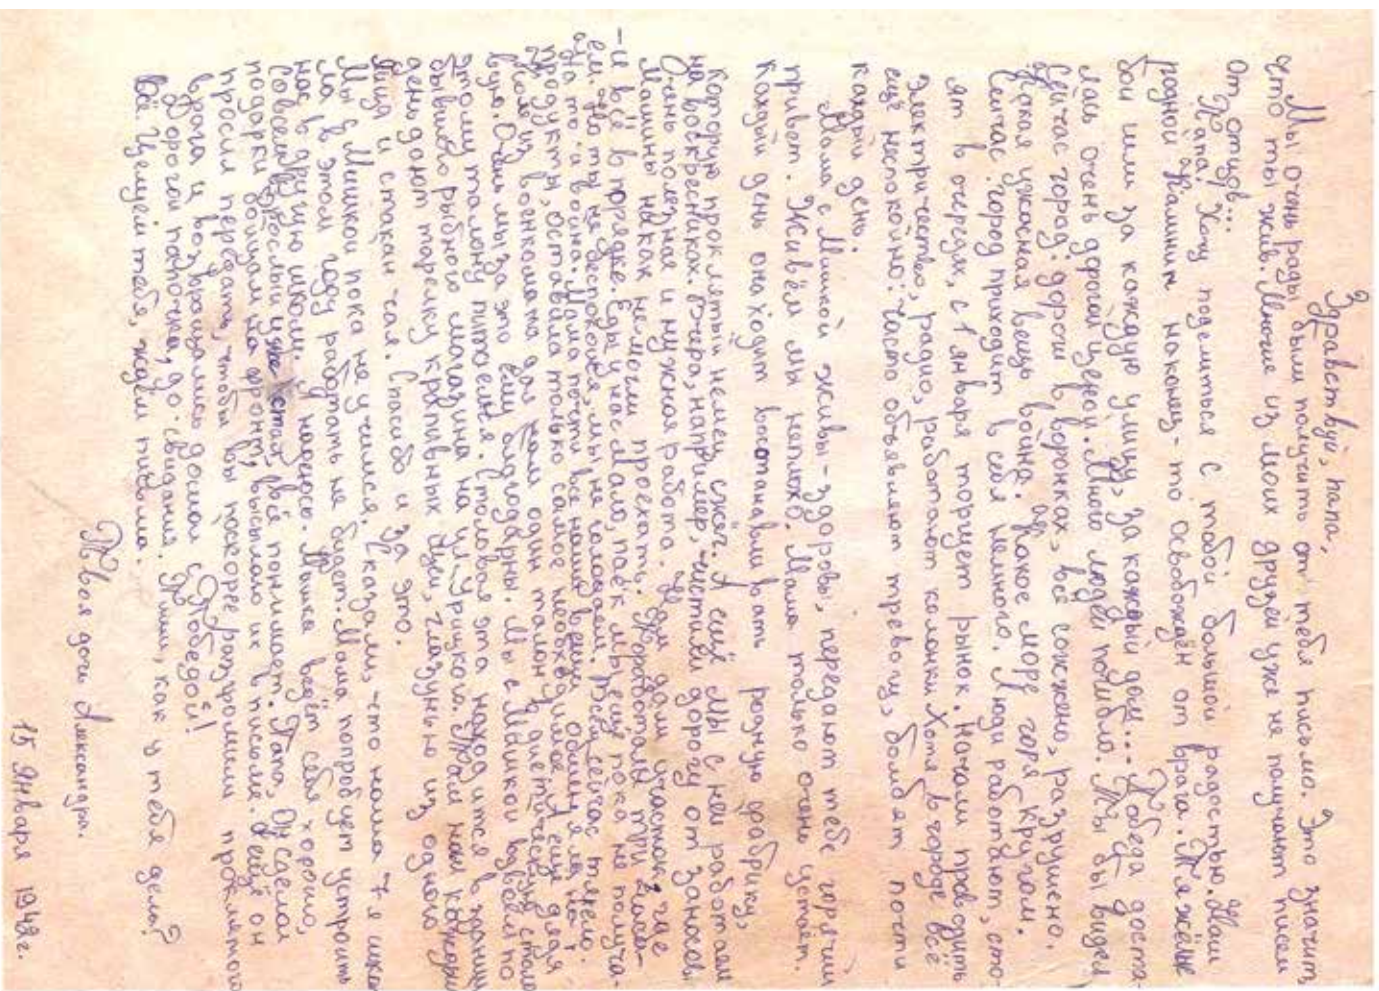 Здравствуй, папа,
Мы очень рады были получить от тебя письмо. Это значит
что ты жив. Многие из моих друзей уже не получают писем
от отцов...
Папа! Хочу поделиться с тобой большой радостью. Наш
родной Калинин наконец-то освобождён от врага. Тяжёлые
бои шли за каждую улицу, за каждый дом... Победа доста-
лась очень дорогой ценой. Много людей погибло. Ты бы видел
сейчас город: дороги в воронках, всё сожжено, разрушено.
Какая ужасная вещь война. Какое море горя кругом.
Сейчас город приходит в себя немного. Люди работают, сто-
ят в очередях, с 1 января торгует рынок. Начали проводить
электричество, радио, работают колонки. Хотя в городе всё
ещё неспокойно: часто объявляют тревогу, бомбят почти
каждый день.
Мама с Мишкой живы-здоровы, передают тебе горячий
привет. Живём мы неплохо. Мама только очень устаёт.
Каждый день она ходит восстанавливать родную фабрику,
которую проклятый немец сжёг. А ещё мы с ней работаем
на воскресниках. Вчера, например, чистили дорогу от заносов.
Очень полезная и нужная работа. Нам дали участок, где
машины никак не могли проехать. Проработали три часа-
и всё в порядке. Еды у нас мало, паёк мы ещё пока не получа-
ем, но ты не беспокойся, мы не голодаем. Всем сейчас тяжело.
На то и война. Мама почти все наши вещи обменяла на
продукты, оставила только самое необходимое. А ещё дядя
из военкомата дал нам один талон в диетическую столо-
вую. Очень мы за это ему благодарны. Мы с Мишкой вдвоём по
этому талону питаемся. Столовая эта находится в здании
бывшего рыбного магазина на ул. Урицкого. Там нам каждый
день дают тарелку крапивных щей, глазунью из одного
яйца и стакан чая. Спасибо и за это.
Мы с Мишкой пока не учимся. Сказали, что наша 7-я шко-
ла в этом году работать не будет. Мама попробует устроить
нас в другую школу. Надеюсь. Мишка ведёт себя хорошо,
совсем взрослый уже стал, всё понимает. Папа, он сделал
подарки бойцам на фронт, высылаю их в письме. Ещё он
просил передать, чтобы вы поскорее разгромили проклятого
врага и возвращались домой с Победой!
Дорогой папочка, до свидания. Пиши, как у тебя дела?
Всё. Целуем тебя, ждём письма.
Твоя дочь Александра.
15 января 1942г.